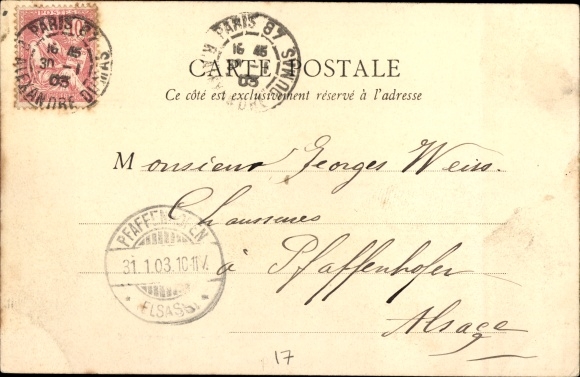 PARIS 87
16 45
30 - 1
03
R. ALEXANDRE DUMAS
PARIS 87
16 45
30 - 1
03
DUMAS
CARTE POSTALE
Ce côté est exclusivement réservé à l'adresse
Monsieur Georges Weiss.
Chaussures
à Pfaffenhofen
Alsace
PFAFFENHOFEN
31.1.03.10-11V.
* (ELSASS) *
17